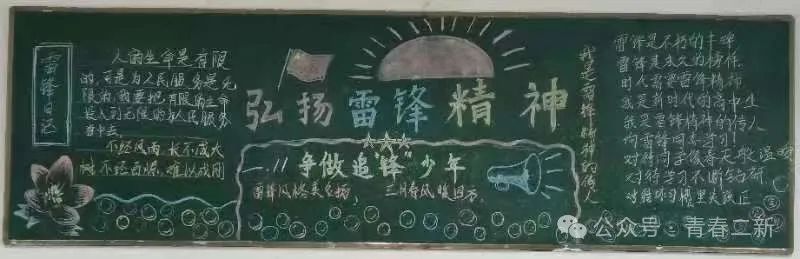 雷锋日记
人的生命是有限
的，可是为人民服务是无
限的，我要把有限的生命
投入到无限的为人民服务
当中去
不经风雨，长不成大
树，不经百炼，难以成钢
弘扬雷锋精神
争做追“锋”少年
雷锋风
三月春风暖四方，
我是雷锋精神的传人
雷锋是不朽的丰碑
雷锋是永久的榜样
时代需要雷锋精神
我是新时代的高中生
我是雷锋精神的传人
向雷锋同志学习
对待同学像春天般温暖
对待学习不断钻研
公众号·青春二新